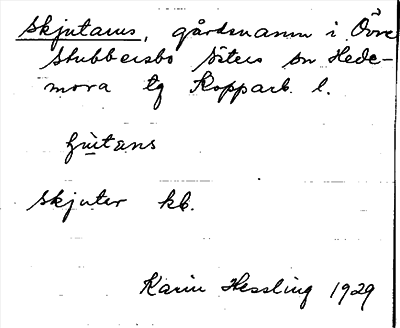 Skjutans, gårdsnamn i Övre
Stubbersbo Säters sn Hede-
mora tg Kopparb. l.
ʃʉ̀tans
Skjuter kb.
Karin Hessling 1929